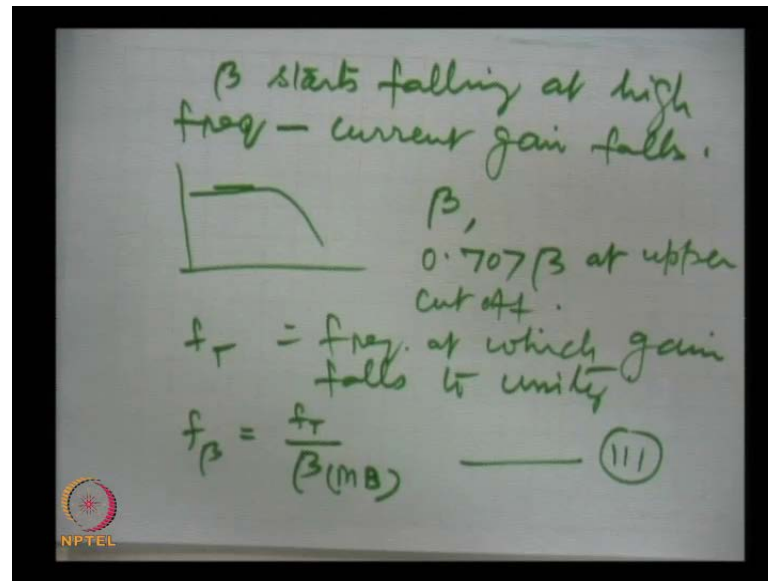 β starts falling at high
freq – current gain falls.
β,
0.707β at upper
cut off.
f_T = freq. at which gain
falls to unity
f_β = f_T / β(MB) ——— (III)
NPTEL